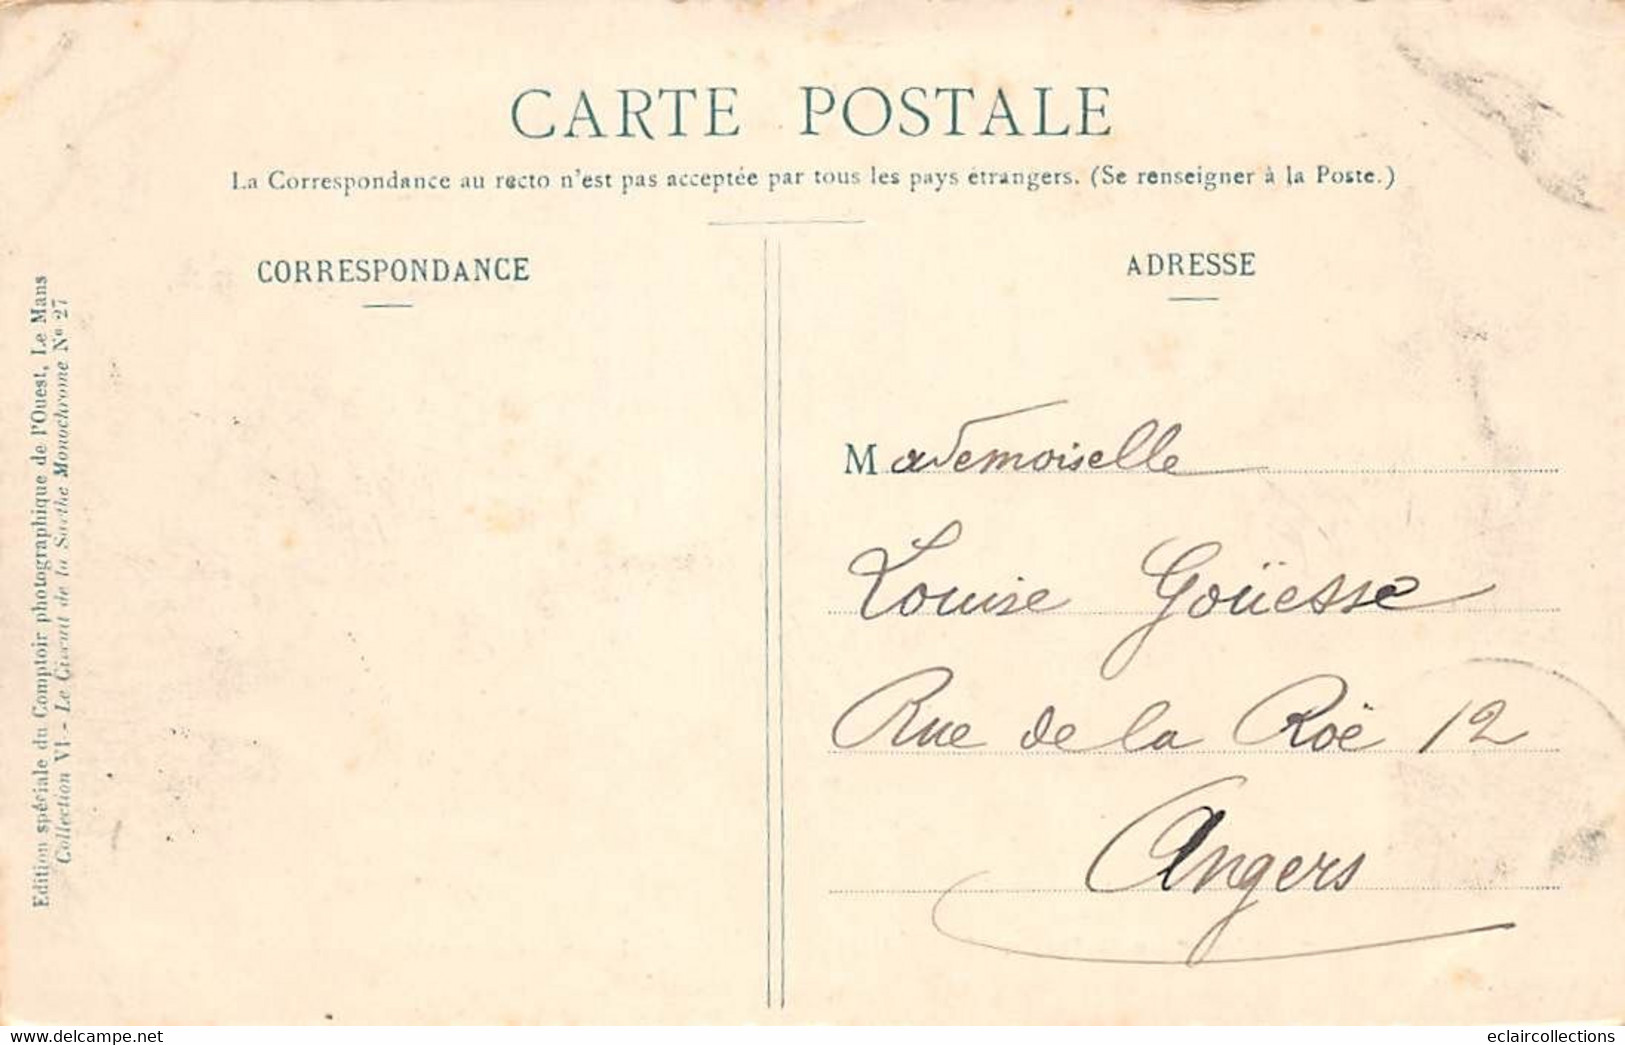 CARTE POSTALE
La Correspondance au recto n'est pas acceptée par tous les pays étrangers. (Se renseigner à la Poste.)
CORRESPONDANCE
ADRESSE
Edition spéciale du Comptoir photographique de l'Ouest, Le Mans
Collection VI - Le Circuit de la Sarthe Monochrome No 27
Mademoiselle
Louise Goüesse
Rue de la Roë 12
Angers
www.delcampe.net
eclaircollections